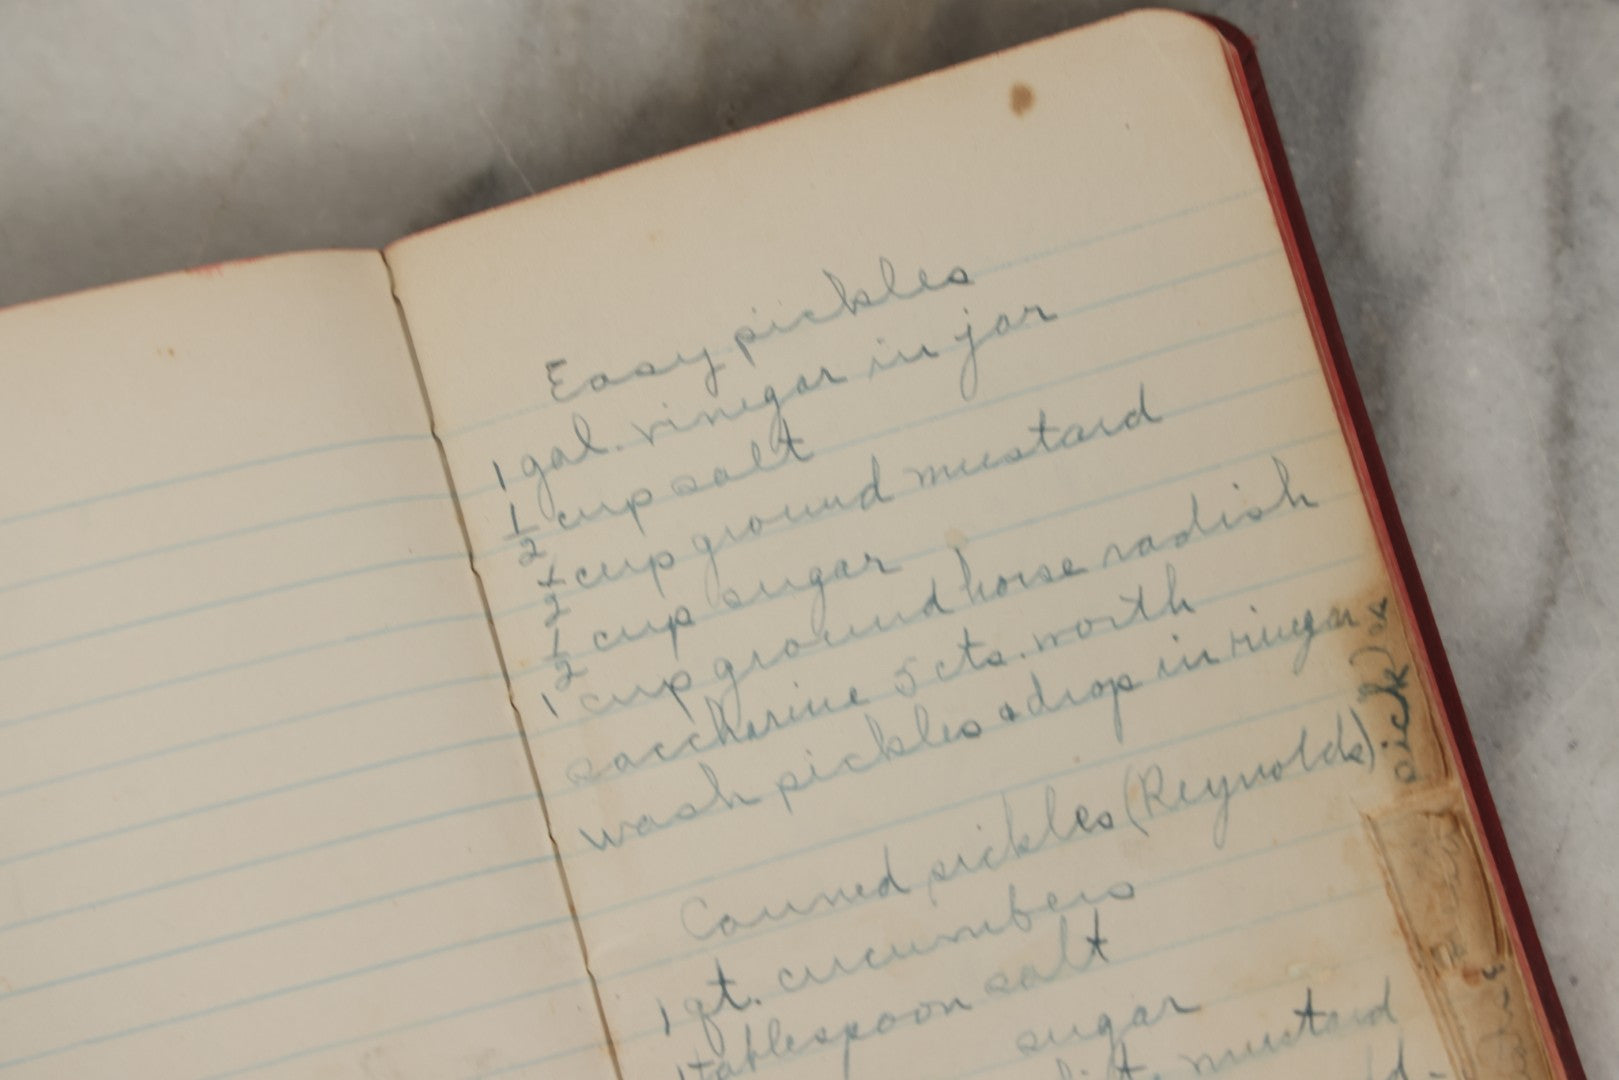 Easy pickles
1 gal. vinegar in jar
1/2 cup salt
1/2 cup ground mustard
1/2 cup sugar
1 cup ground horse radish
saccharine 5 cts. worth
wash pickles & drop in vinegar
Canned pickles (Reynolds)
1 qt. cucumbers
1 tablespoon salt
sugar
mustard